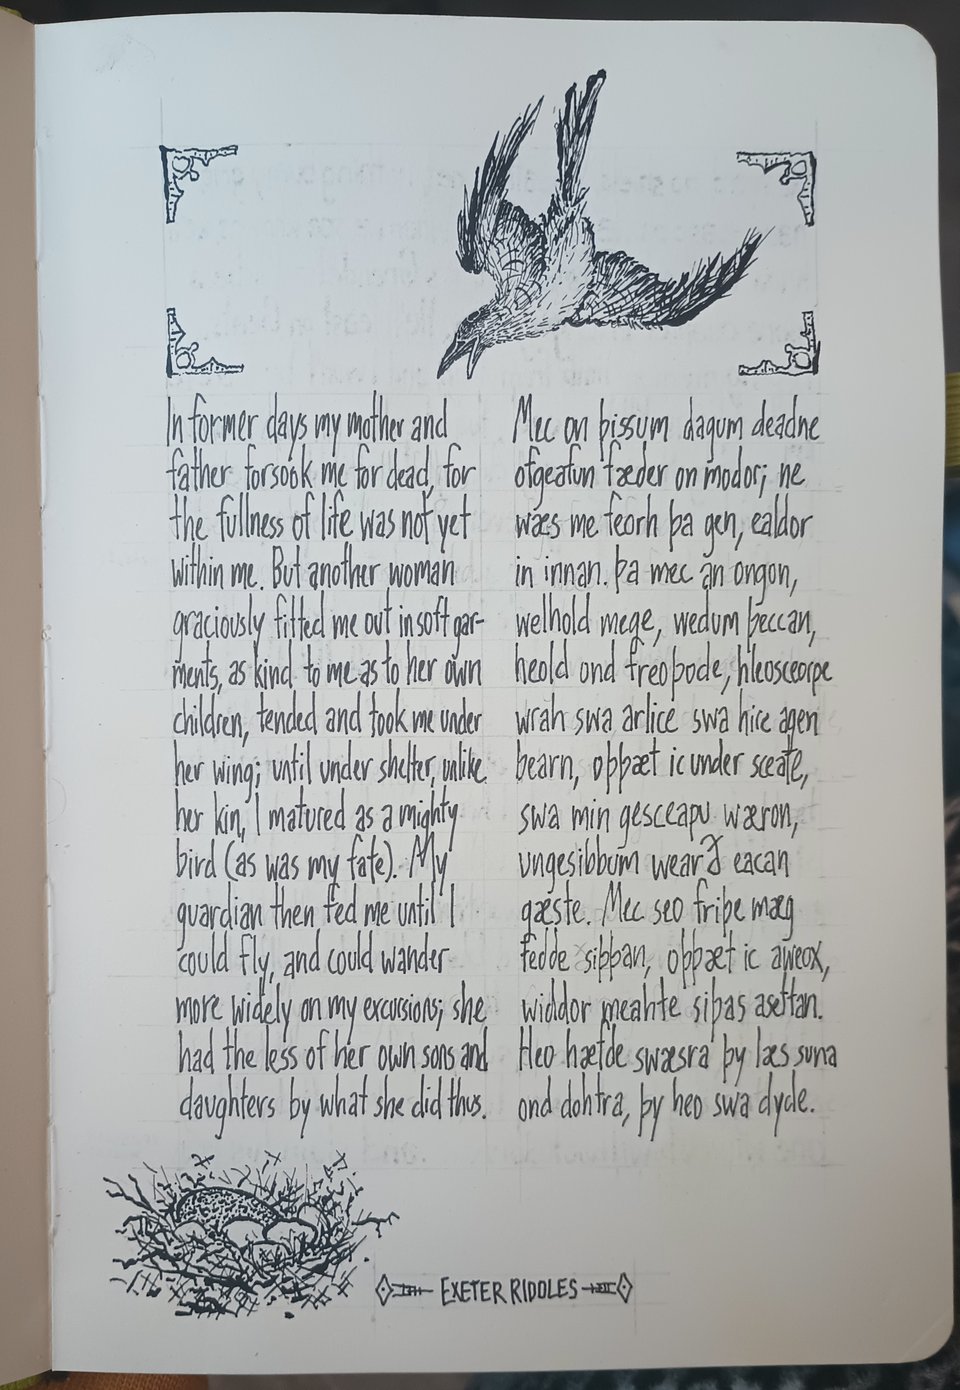 In former days my mother and
father forsook me for dead, for
the fullness of life was not yet
within me. But another woman
graciously fitted me out in soft gar-
ments, as kind to me as to her own
children, tended and took me under
her wing; until under shelter, unlike
her kin, I matured as a mighty
bird (as was my fate). My
guardian then fed me until I
could fly, and could wander
more widely on my excursions; she
had the less of her own sons and
daughters by what she did thus.
Mec on þissum dagum deadne
ofgeafun fæder on modor; ne
wæs me feorh þa gen, ealdor
in innan. þa mec an ongon,
welhold mege, wedum þeccan,
heold ond freoþode, hleosceorpe
wrah swa arlice swa hire agen
bearn, oþþæt ic under sceate,
swa min gesceapu wæron,
ungesibbum wearð eacan
gæste. Mec seo friþe mæg
fedde siþþan, oþþæt ic aweox,
widdor meahte siþas asettan.
Heo hæfde swæsra þy læs suna
ond dohtra, þy heo swa dyde.
EXETER RIDDLES